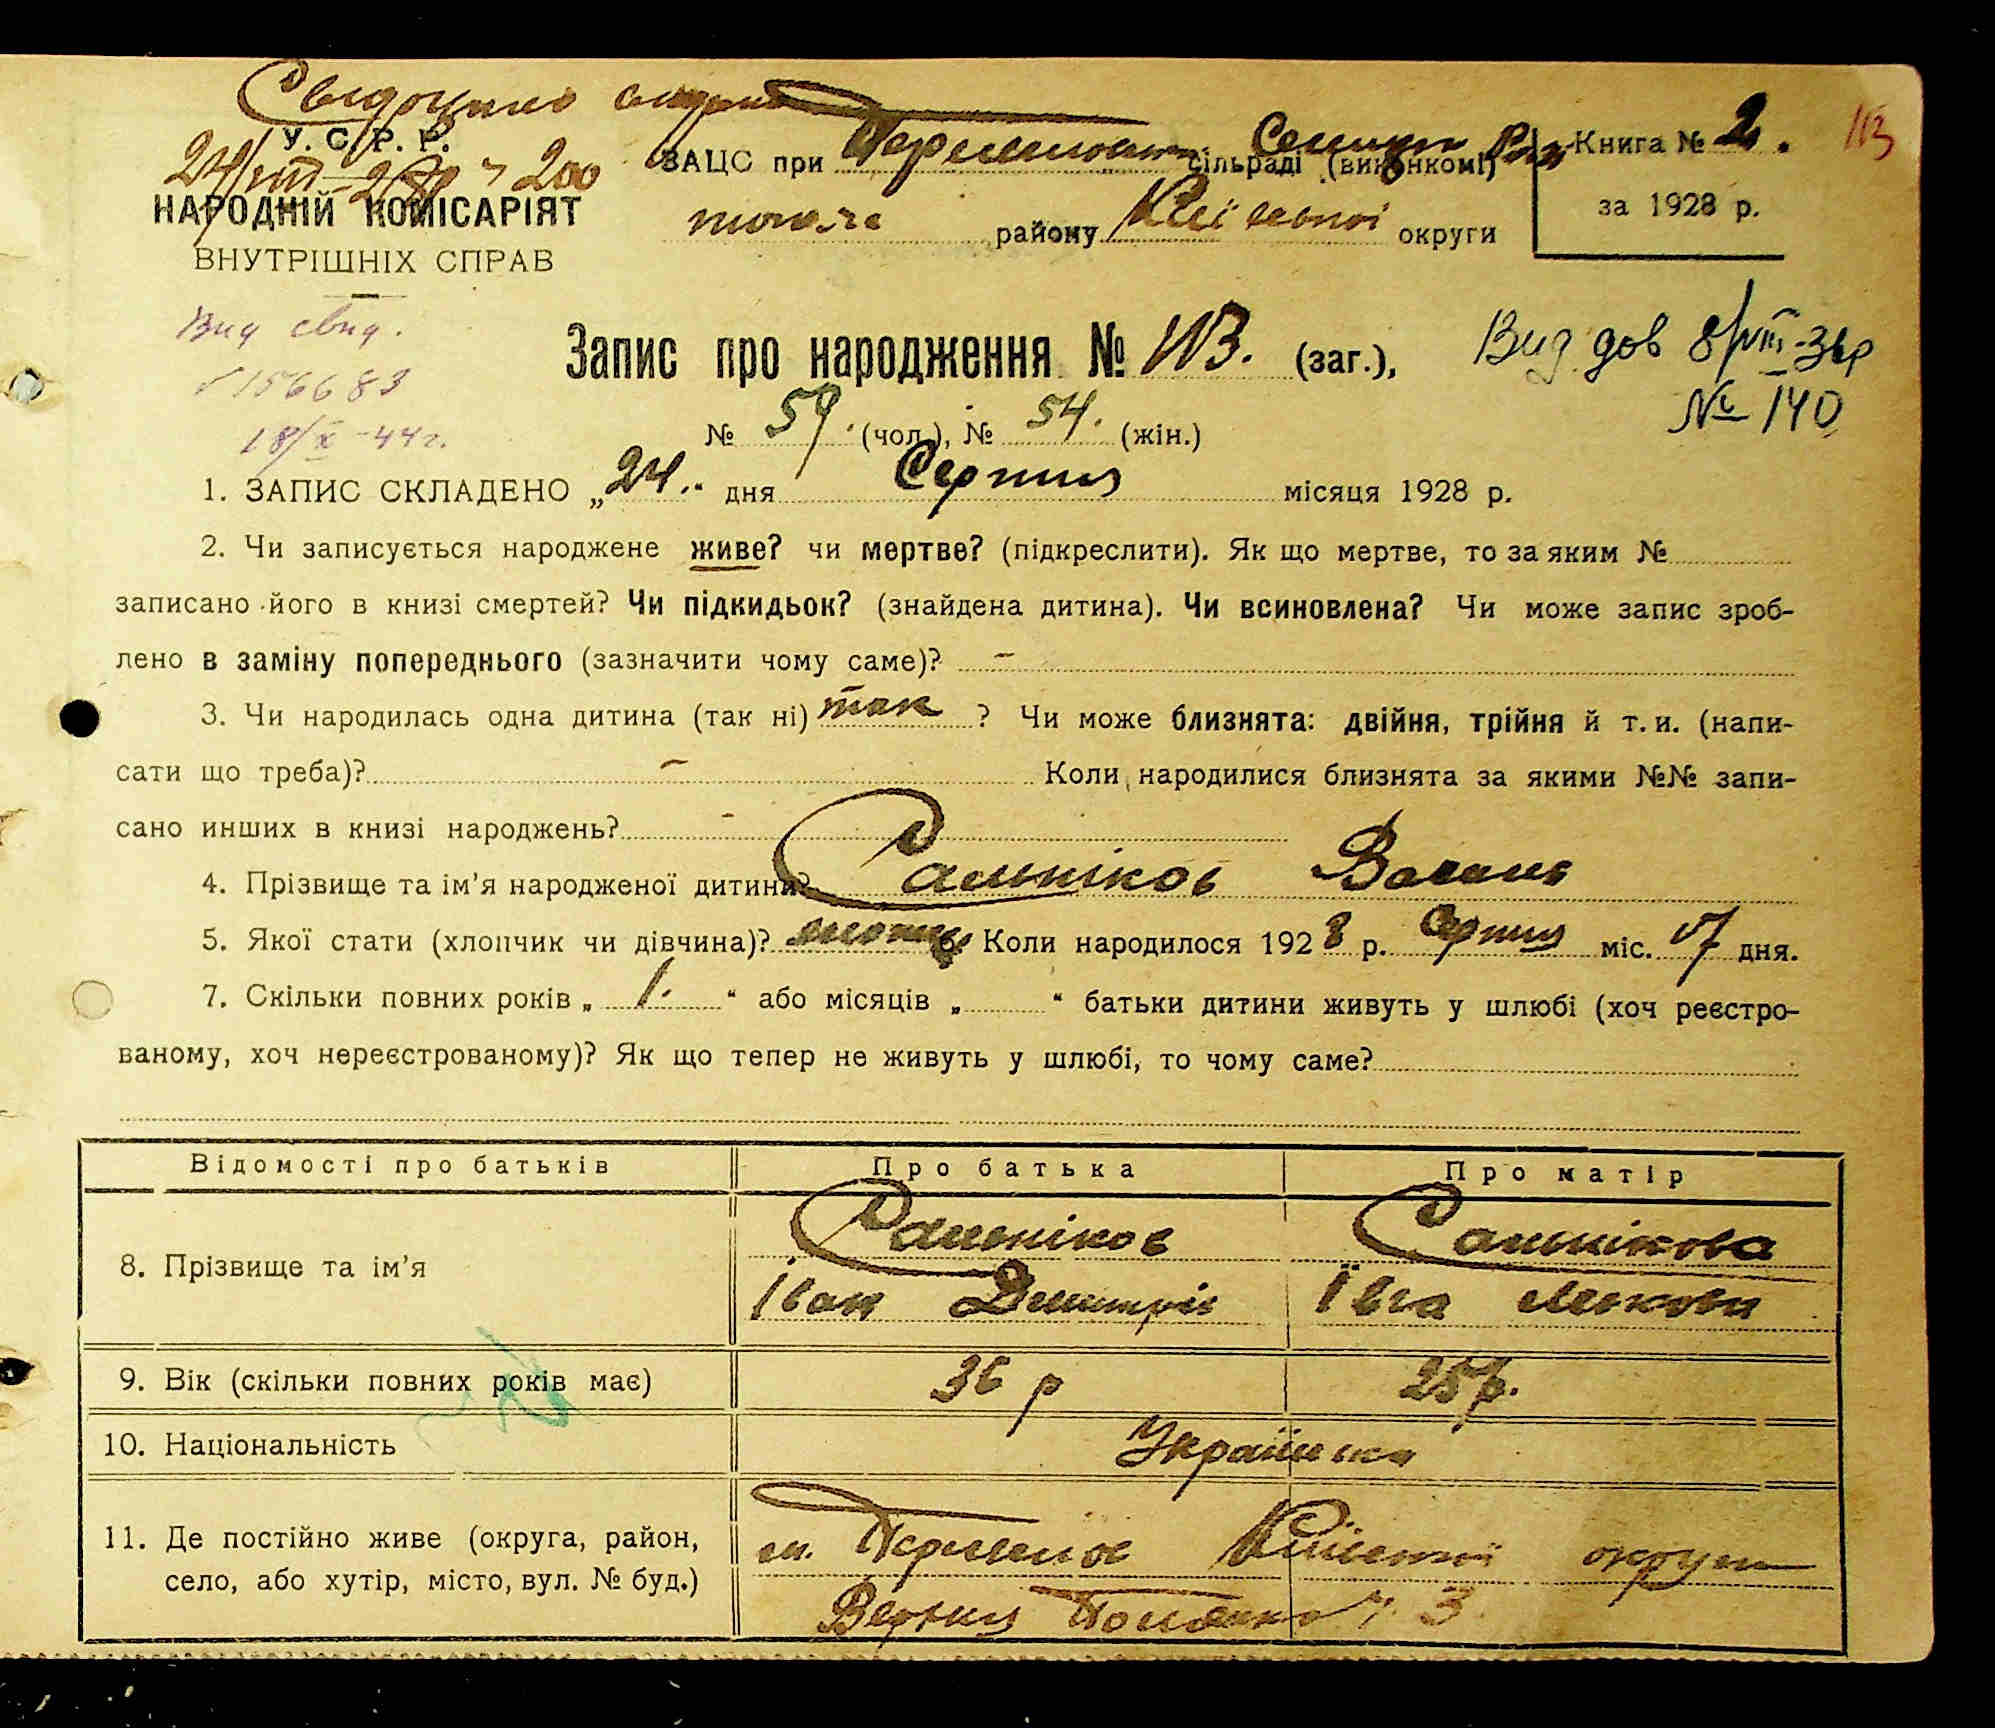 У. С. Р. Р.
24/VIII-28р ч 200
НАРОДНІЙ КОМІСАРІЯТ
ВНУТРІШНІХ СПРАВ
ЗАЦС при сільраді (виконкомі)
району Київської округи
Книга № 2.
за 1928 р.
113
Вид свид.
156683
18/X-44г.
Запис про народження № 113. (заг.),
Вид. дов 8/VIII-34р
№ 140
№ 59. (чол.), № 54. (жін.)
1. ЗАПИС СКЛАДЕНО „24.“ дня Серпня місяця 1928 р.
2. Чи записується народжене живе? чи мертве? (підкреслити). Як що мертве, то за яким №
записано його в книзі смертей? Чи підкидьок? (знайдена дитина). Чи всиновлена? Чи може запис зроб-
лено в заміну попереднього (зазначити чому саме)? -
3. Чи народилась одна дитина (так ні) так ? Чи може близнята: двійня, трійня й т. и. (напи-
сати що треба)? - Коли народилися близнята за якими №№ запи-
сано инших в книзі народжень? -
4. Прізвище та ім’я народженої дитини? Сальніков
5. Якої стати (хлопчик чи дівчина)? Коли народилося 1928 р. Серпня міс. 17 дня.
7. Скільки повних років „ 1. “ або місяців „ “ батьки дитини живуть у шлюбі (хоч реєстро-
ваному, хоч нереєстрованому)? Як що тепер не живуть у шлюбі, то чому саме?
Відомості про батьків
Про батька
Про матір
8. Прізвище та ім’я
Сальніков
Іван Дмитрів
Сальнікова
Івга
9. Вік (скільки повних років має)
36 р
25 р.
10. Національність
Українська
11. Де постійно живе (округа, район,
село, або хутір, місто, вул. № буд.)
м. Київської округи
ч. 3